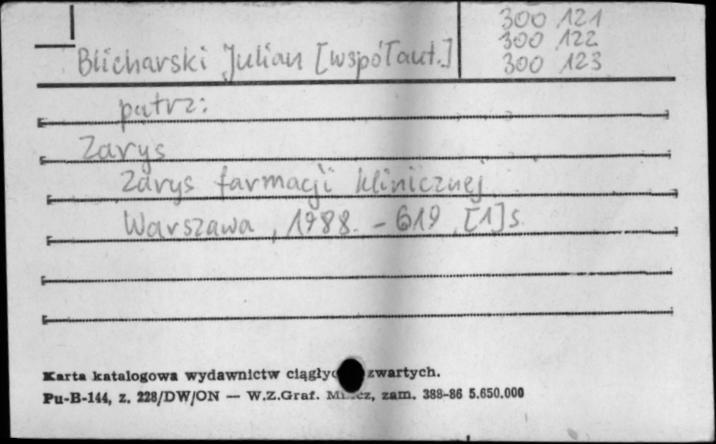 300 121
300 122
Blicharski Julian [współaut.] 300 123
patrz:
Zarys
Zarys farmacji klinicznej
Warszawa, 1988. - 619, [1] s.
Karta katalogowa wydawnictw zwartych.
Pu-B-144, z. 228/DW/ON — W.Z.Graf. zam. 388-86 5.650.000